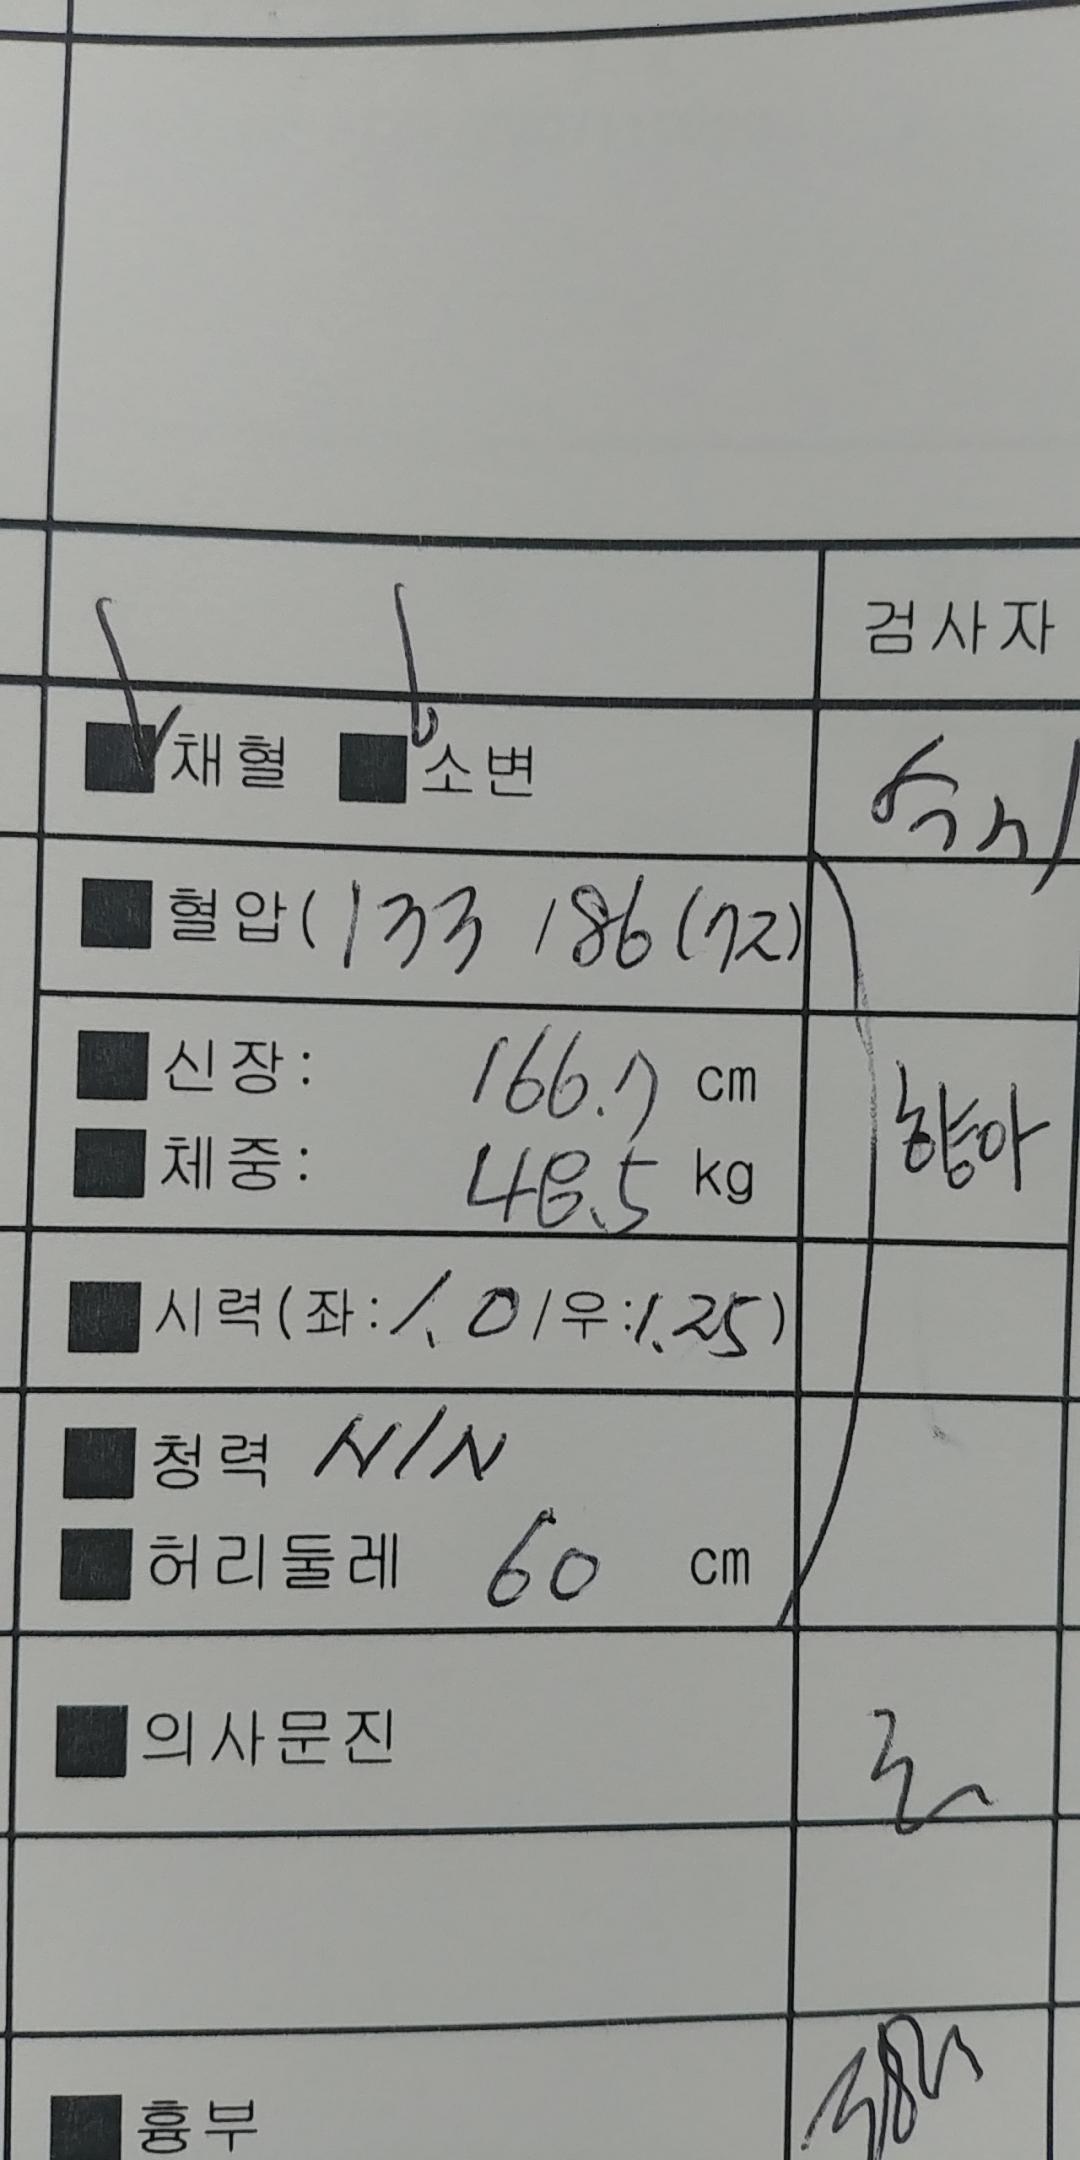 검사자
■채혈 ■소변
■혈압(133 /86 (72)
■신장: 166.7 cm
■체중: 48.5 kg
향아
■시력(좌:1.0/우:1.25)
■청력 N/N
■허리둘레 60 cm
■의사문진
■흉부